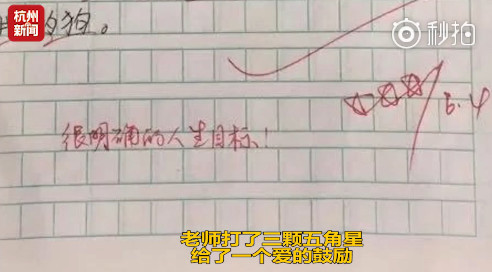 杭州
新闻
秒拍
的狗。
6.4
很明确的人生目标!
老师打了三颗五角星
给了一个爱的鼓励